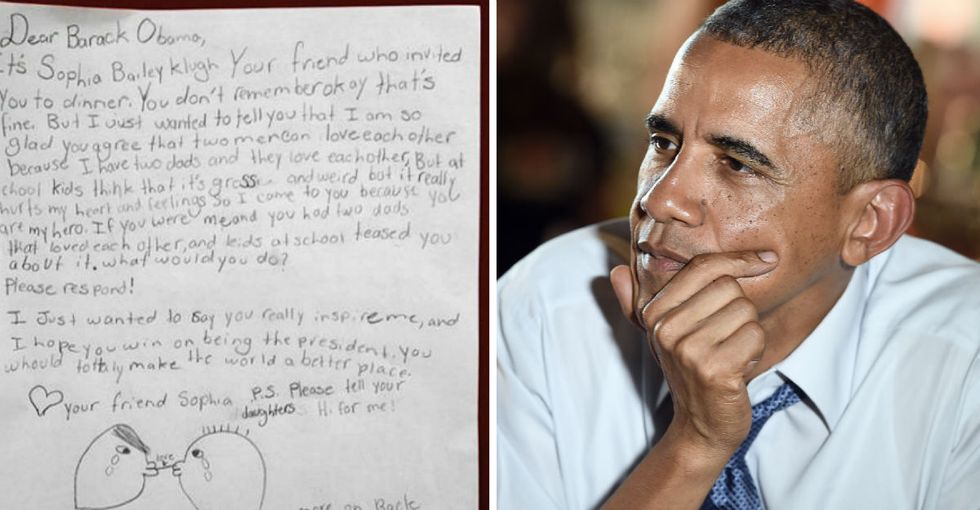 Dear Barack Obama,
It's Sophia Bailey klugh Your friend who invited
You to dinner. You don't remember okay that's
fine. But I Just wanted to tell you that I am so
glad you agree that two men can love each other
because I have two dads and they love each other. But at
school kids think that it's gross and weird but it really
hurts my heart and feelings. So I come to you because you
are my hero. If you were me and you had two dads
that loved each other, and kids at school teased you
about it. what would you do?
Please respond!
I Just wanted to say you really inspire me, and
I hope you win on being the president. you
whould tottaly make the world a better place.
your friend Sophia P.S. Please tell your
daughters Hi for me!
love
more on Back